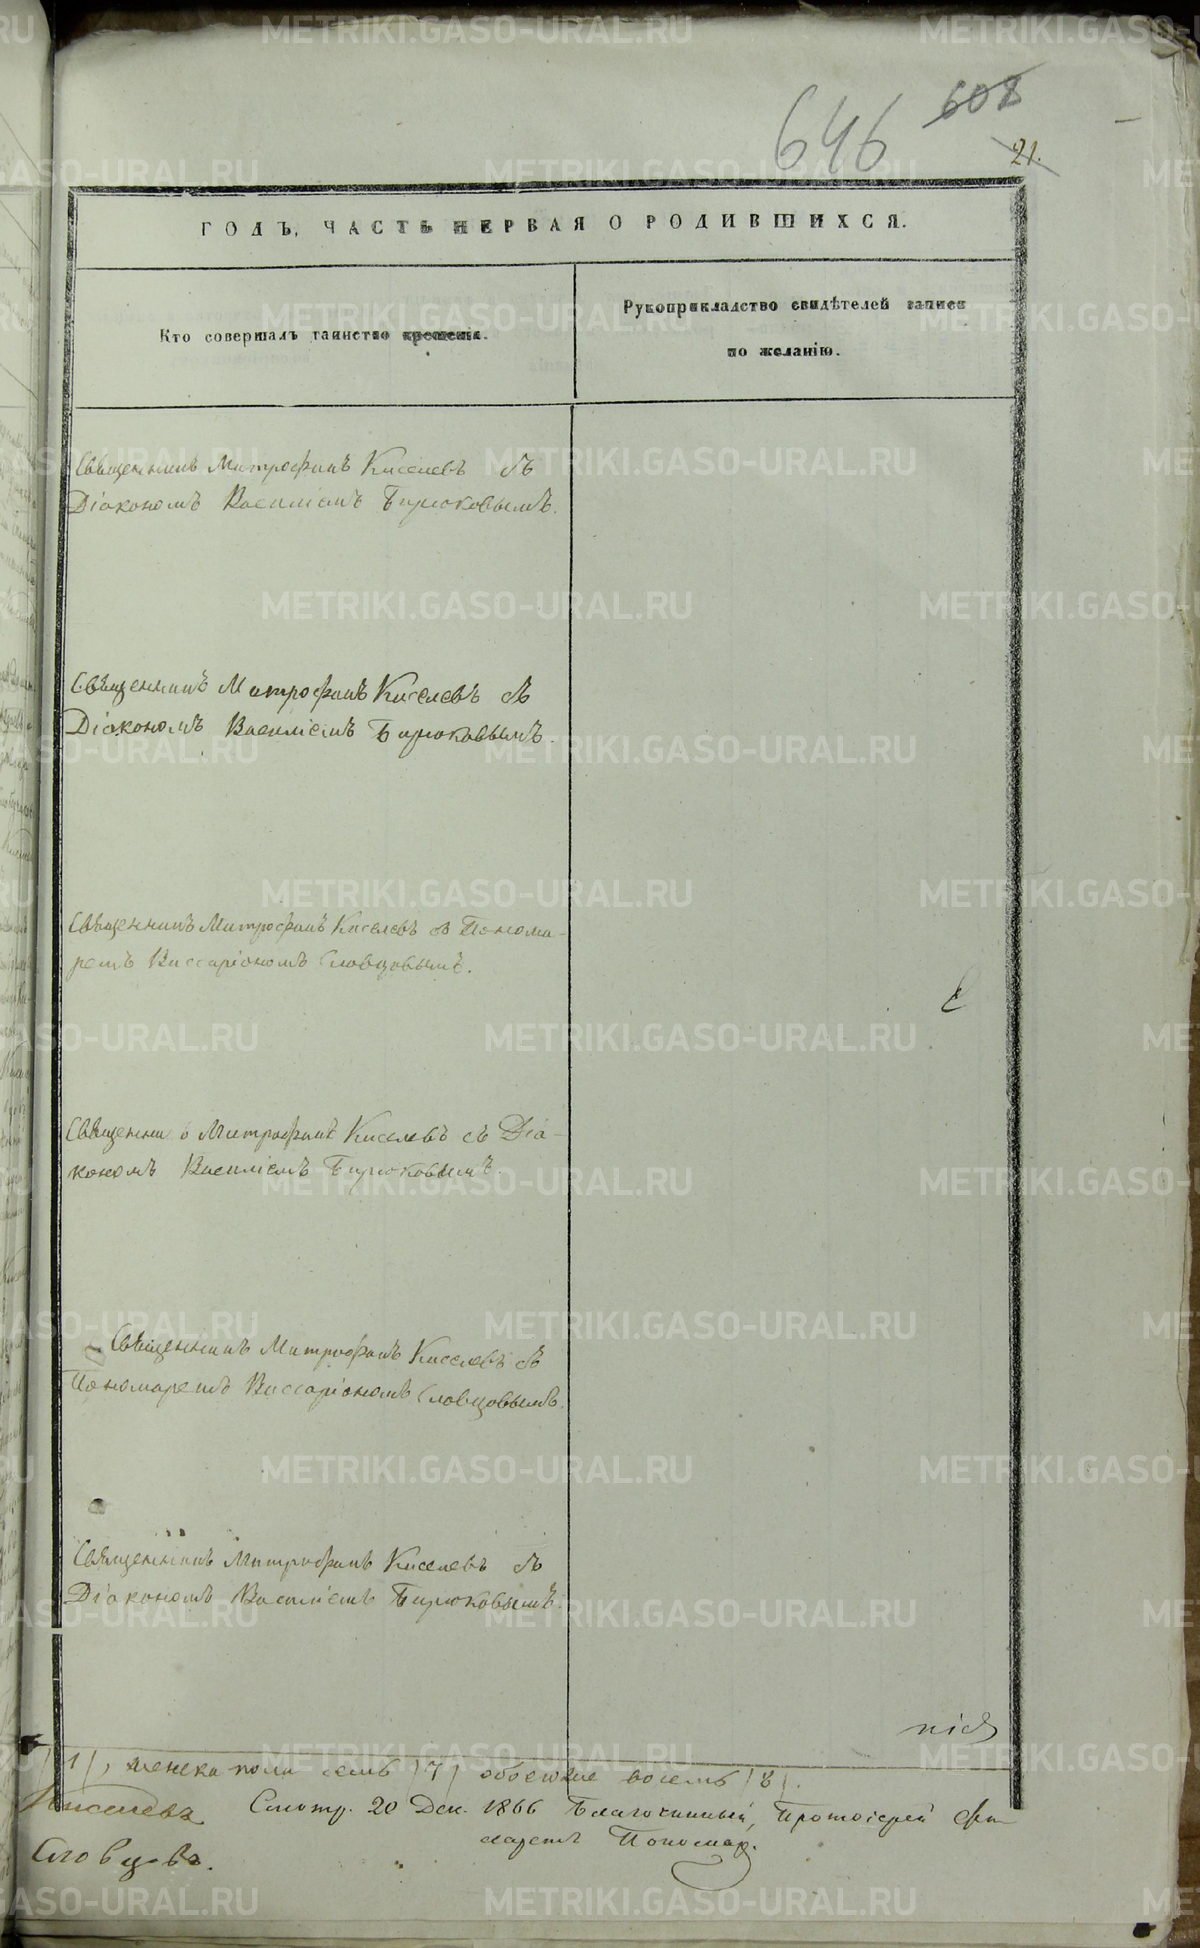 646 608
21.
ГОДЪ, ЧАСТЬ ПЕРВАЯ О РОДИВШИХСЯ.
Кто совершалъ таинство крещенія.
Рукоприкладство свидѣтелей записи
по желанію.
Священникъ Митрофанъ Киселевъ съ
Діакономъ Василіемъ Бирюковымъ.
Священникъ Митрофанъ Киселевъ съ
Діакономъ Василіемъ Бирюковымъ.
Священникъ Митрофанъ Киселевъ съ Понома-
ремъ Виссаріономъ Словцовымъ.
Священникъ Митрофанъ Киселевъ съ Діа-
кономъ Василіемъ Бирюковымъ.
Священникъ Митрофанъ Киселевъ съ
Пономаремъ Виссаріономъ Словцовымъ.
Священникъ Митрофанъ Киселевъ съ
Діакономъ Василіемъ Бирюковымъ.
/1/, женска пола семь /7/ обоегоже восемь /8/.
Киселевъ Смотр. 20 Дек. 1866 Благочинный, Протоіерей
Пономар.
Словцовъ.
METRIKI.GASO-URAL.RU